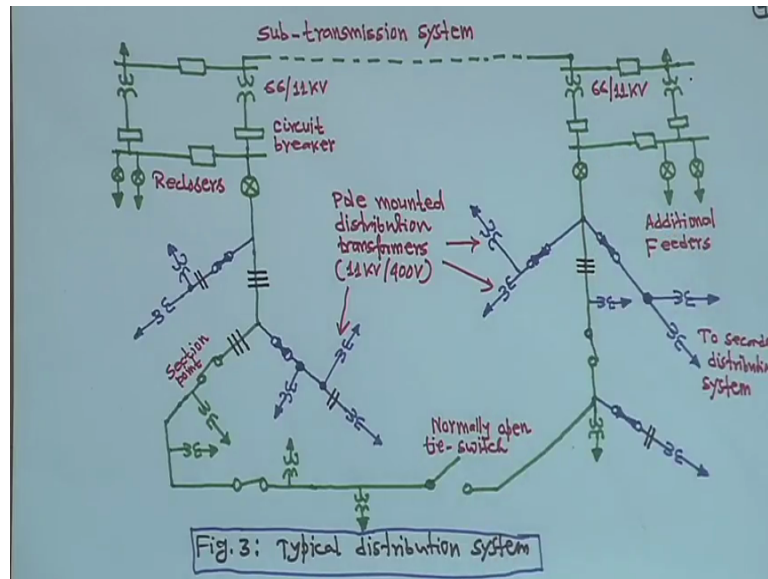 Sub-transmission system
66/11KV
66/11KV
Circuit
breaker
Reclosers
Pole mounted
distribution
transformers
(11KV/400V)
Additional
Feeders
Section
point
To
distribution
system
Normally open
tie-switch
Fig. 3: Typical distribution system